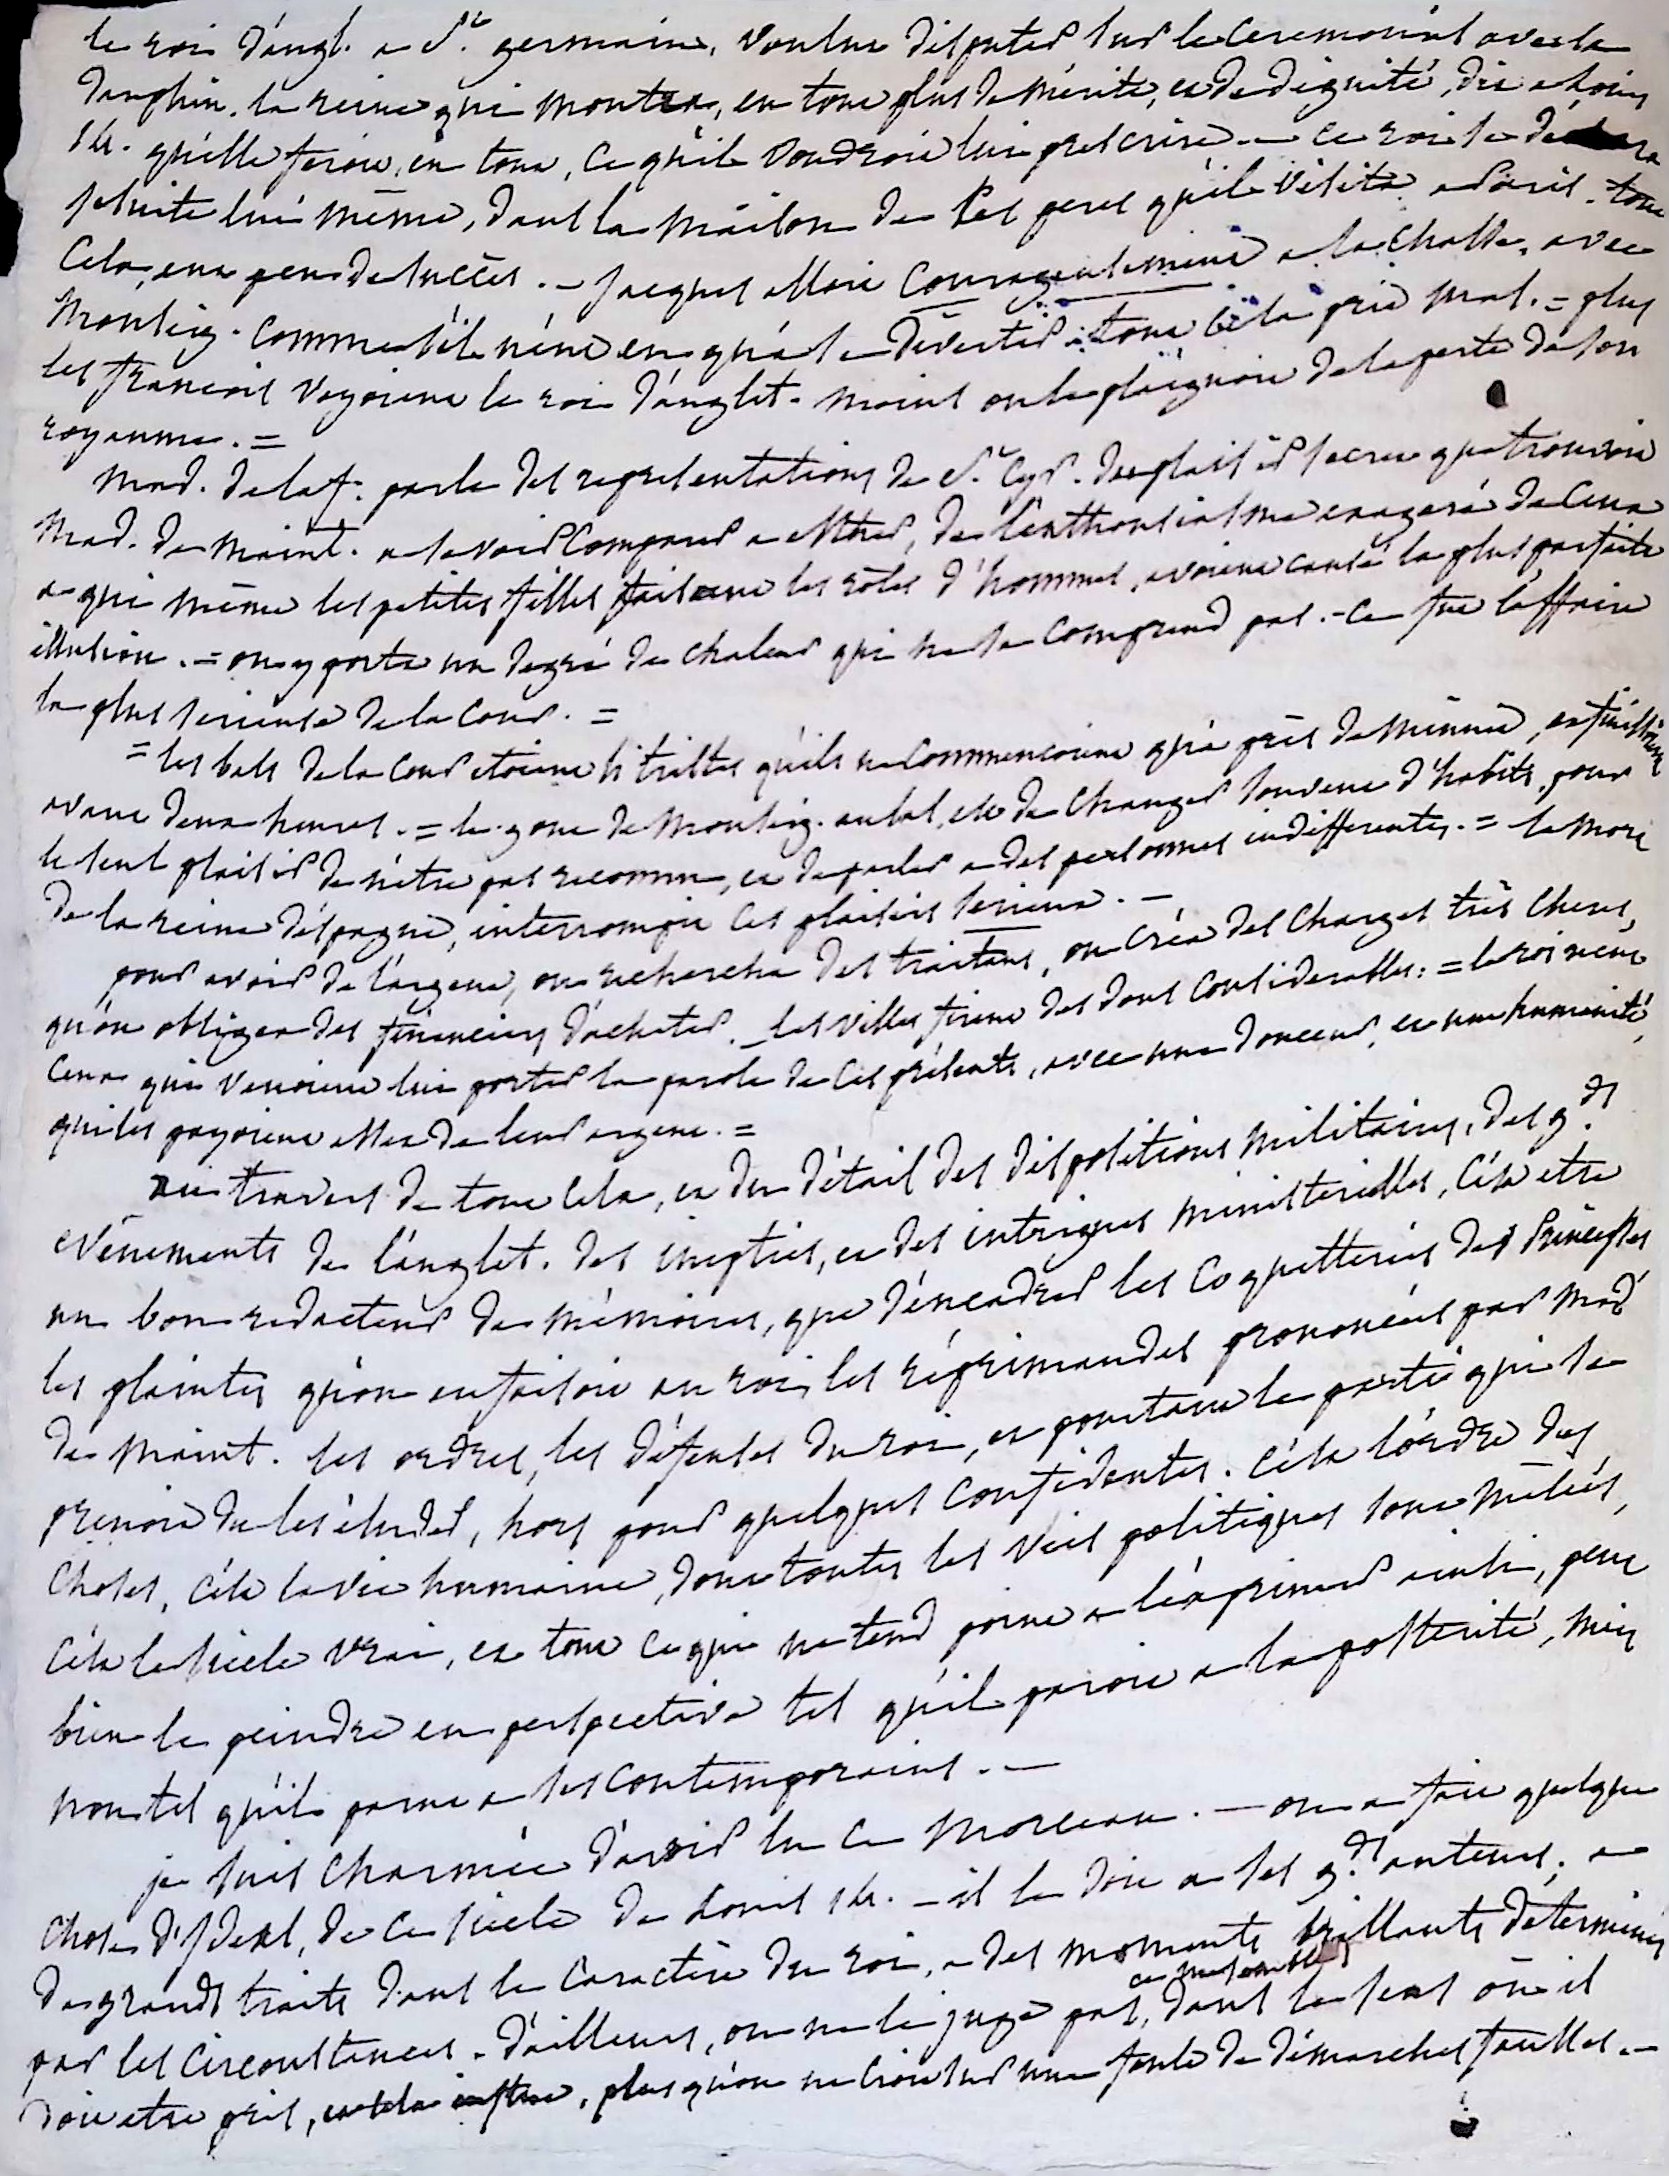 le roi d'angl. a St. germain, voulut disputer sur le Ceremonial avec la
Dauphin. la reine qui montra, en tout plus de mérite, et de dignité, dit a Louis
14. qu'elle feroit, en tout, ce qu'il voudroit lui prescrire. — ce roi se déclara
jesuite lui même, dans la maison de ses peres qu'il visita a Paris. tout
Cela, eut peu de succès. — jacques alloit Courageusement a la chasse, avec
Monseig. comme s'il n'eut eu qu'a se divertir. tout cela prit mal. = plus
les françois voyoient le roi d'anglet. moins on le plaignoit de la perte de son
royaume. =
Mad. de la f. parle des representations de St. Cyr. du plaisir secret que trouvoit
Mad. de Maint. a se voir comparer a esther, de l'enthousiasme exageré de ceux
a qui même les petites filles faisant les rôles d'hommes, avoient causé la plus parfaite
illusion. = on y porta un degré de chaleur qui ne se comprend pas. - ce fut l'affaire
la plus serieuse de la Cour. =
= les bals de la Cour etoient si tristes qu'ils ne commençoient qu'a près de minuit, et finissoient
avant deux heures. = le gout de Monseig. au bal, etoit de changer souvent d'habits, pour
le seul plaisir de n'être pas reconnu, et de parler a des personnes indifferentes. = la mort
de la reine d'espagne, interrompit ces plaisirs serieux. —
pour avoir de l'argent, on rechercha des traitans, on créa des charges très cheres,
qu'on obligea des financiers d'acheter. — les villes firent des dons considerables: = le roi reçut
ceux qui venoient lui porter la parole de ces présents, avec une douceur, et une humanité,
qui les payoient assez de leur argent. =
au travers de tout cela, et du détail des dispositions militaires, des gds.
evènements de l'anglet. des inepties, et des intrigues ministerielles, c'est etre
un bon redacteur de mémoires, que d'encadrer les coquetteries des Princesses
les plaintes qu'on en faisoit au roi, les réprimandes prononcées par Mad.
de Maint. les ordres, les défenses du roi, et pourtant le parti qui se
prenoit de les éluder, hors pour quelques confidentes. c'est l'ordre des
choses, c'est la vie humaine, dont toutes les vies politiques sont mêlées,
c'est le siecle vrai, et tout ce qui ne tend point a l'exprimer ainsi, peut
bien le peindre en perspective tel qu'il paroit a la postérité, mais
non tel qu'il parut a ses contemporains. —
je suis charmée d'avoir lu ce morceau. — on a fait quelque
chose d'ideal, de ce siecle de Louis 14. — il le doit a ses gds. auteurs, a
de grands traits dans le caractère du roi, a des moments brillants déterminés
par les circonstances. d'ailleurs, on ne le juge pas, ce me semble, dans le sens où il
doit etre pris, plus qu'on ne croit sur une foule de démarches fausses. —